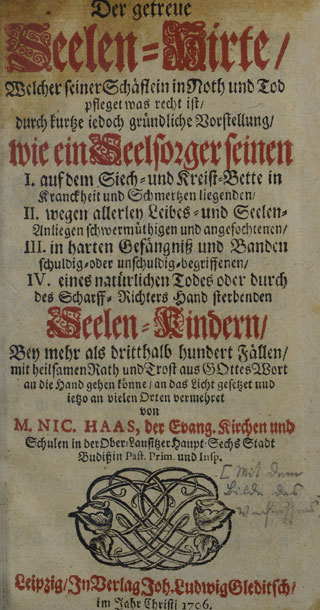 Der getreue
Seelen-Hirte/
Welcher seiner Schäflein in Noth und Tod
pfleget was recht ist/
durch kurtze iedoch gründliche Vorstellung/
wie ein Seelsorger seinen
I. auf dem Siech- und Kreist-Bette in
Kranckheit und Schmertzen liegenden/
II. wegen allerley Leibes- und Seelen-
Anliegen schwermüthigen und angefochtenen/
III. in harten Gefängniß und Banden
schuldig- oder unschuldig-begriffenen/
IV. eines natürlichen Todes oder durch
des Scharff-Richters Hand sterbenden
Seelen-Kindern/
Bey mehr als dritthalb hundert Fällen/
mit heilsamen Rath und Trost aus GOttes Wort
an die Hand gehen könne/ an das Licht gesetzet und
ietzo an vielen Orten vermehret
von
M. NIC. HAAS, der Evang. Kirchen und
Schulen in der Ober-Lausitzer Haupt-Sechs Stadt
Budißin Past. Prim. und Insp.
[Mit dem
Bilde des
Verfassers
Leipzig/ In Verlag Joh. Ludwig Gleditsch/
im Jahr Christi 1706.